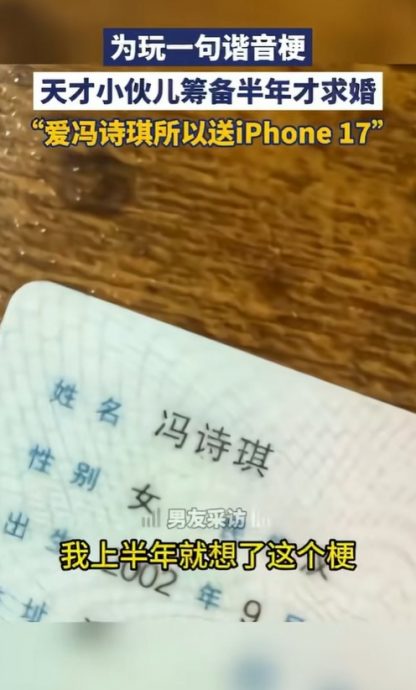 为玩一句谐音梗
天才小伙儿筹备半年才求婚
“爱冯诗琪所以送iPhone 17”
姓名 冯诗琪
性别 女
男友采访
出生 2002 年 9
我上半年就想了这个梗